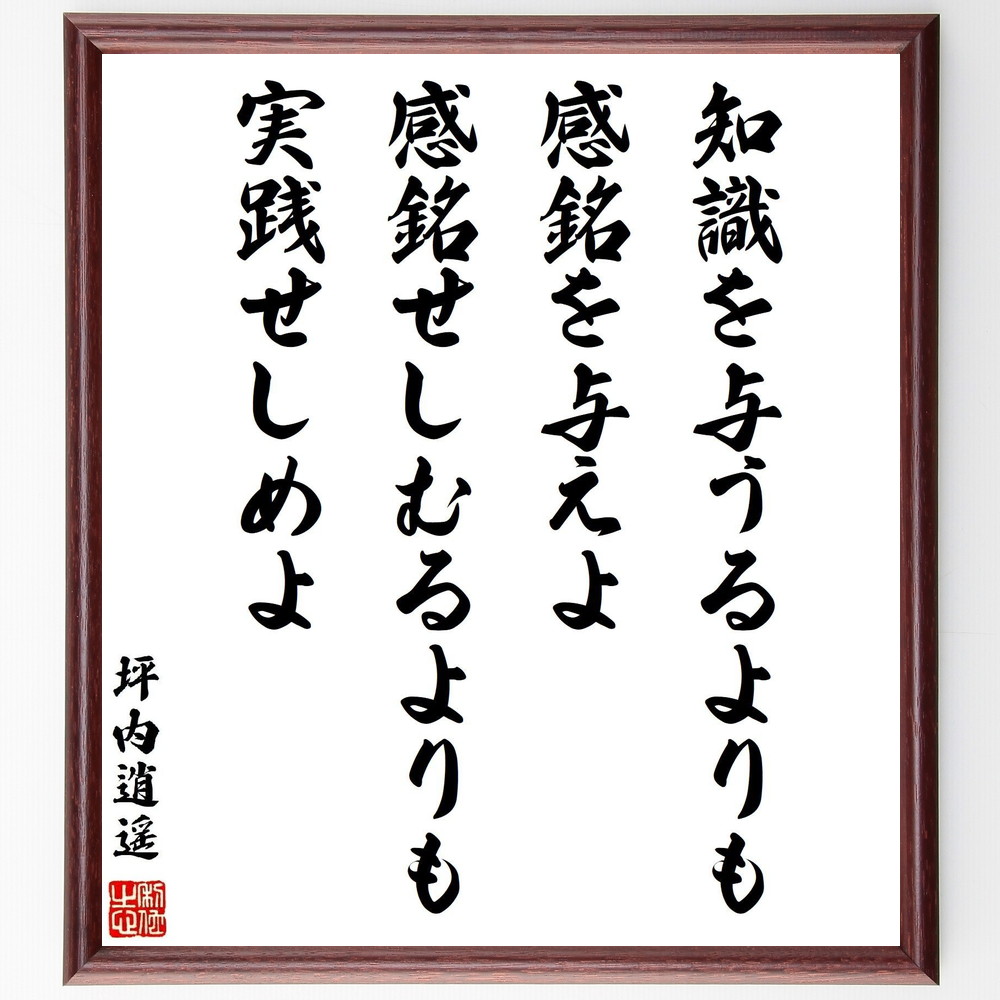 知識を与うるよりも
感銘を与えよ
感銘せしむるよりも
実践せしめよ
坪内逍遥